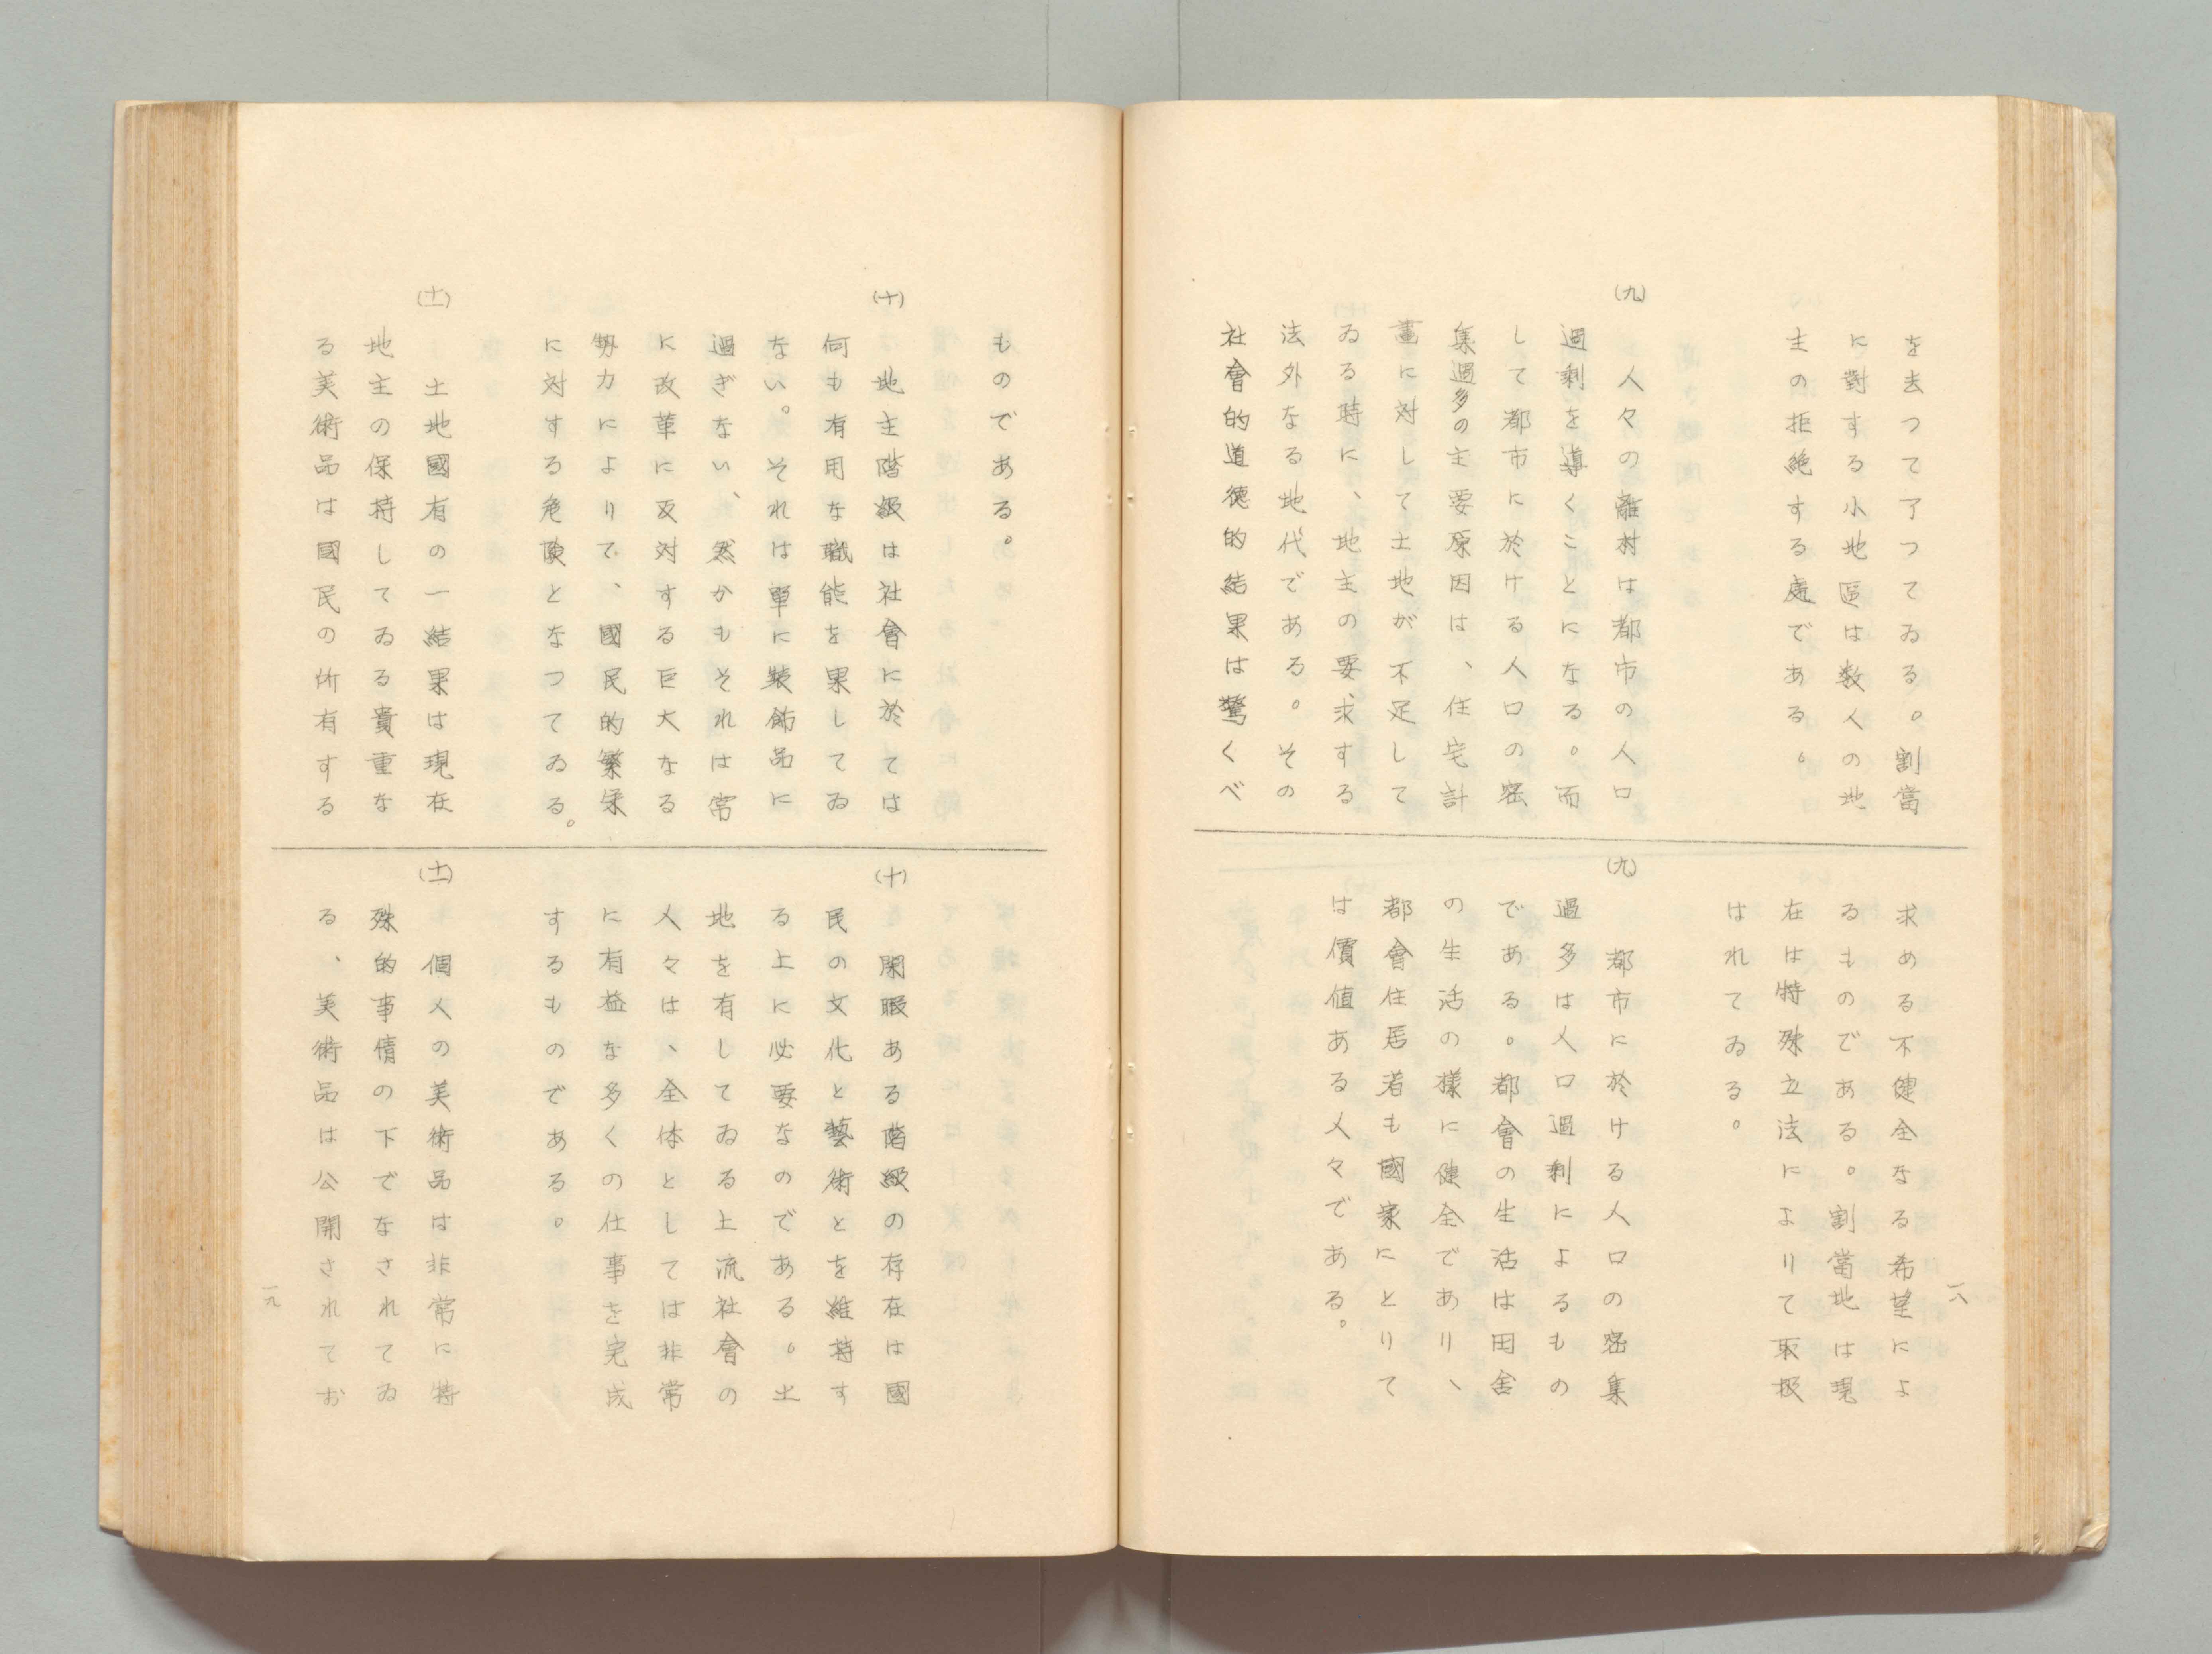 を去つて了つてゐる。割當
に對する小地區は数人の地
主の拒絶する處である。
(九)
人々の離村は都市の人口
過剰を導くことになる。而
して都市に於ける人口の密
集過多の主要原因は、住宅計
畫に対して土地が不足して
ゐる時に、地主の要求する
法外なる地代である。その
社會的道徳的結果は驚くべ
求める不健全なる希望によ
るものである。割當地は現
在は特殊立法によりて取扱
はれてゐる。
(九)
都市に於ける人口の密集
過多は人口過剰によるもの
である。都會の生活は田舎
の生活の様に健全であり、
都會住居者も國家にとりて
は價値ある人々である。
一八
ものである。
(十)
地主階級は社會に於ては
何も有用な職能を果してゐ
ない。それは單に裝飾品に
過ぎない、然かもそれは常
に改革に反対する巨大なる
勢力によりて、國民的繁栄
に対する危険となつてゐる。
(十一)
土地國有の一結果は現在
地主の保持してゐる貴重な
る美術品は國民の所有する
(十)
閑暇ある階級の存在は國
民の文化と藝術とを維持す
る上に必要なのである。土
地を有してゐる上流社會の
人々は、全体としては非常
に有益な多くの仕事を完成
するものである。
(十一)
個人の美術品は非常に特
殊的事情の下でなされてゐ
る、美術品は公開されてお
一九